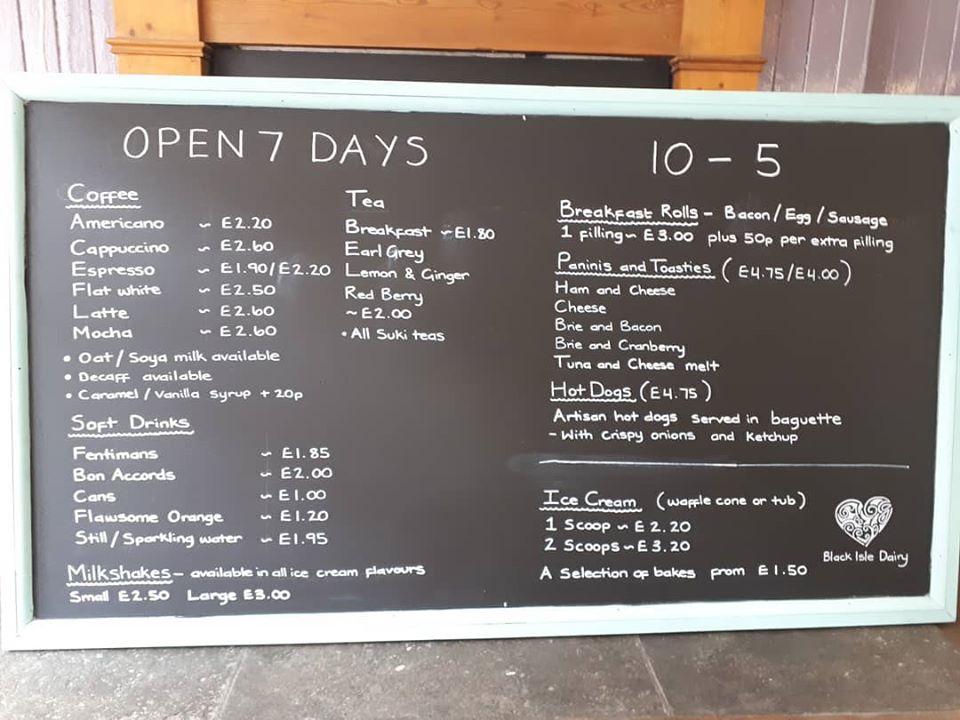 OPEN 7 DAYS
Coffee
Americano ~ £2.20
Cappuccino ~ £2.60
Espresso ~ £1.90/£2.20
Flat white ~ £2.50
Latte ~ £2.60
Mocha ~ £2.60
• Oat/Soya milk available
• Decaff available
• Caramel/Vanilla syrup + 20p
Tea
Breakfast ~ £1.80
Earl Grey
Lemon & Ginger
Red Berry
~ £2.00
• All Suki teas
Soft Drinks
Fentimans ~ £1.85
Bon Accords ~ £2.00
Cans ~ £1.00
Flawsome Orange ~ £1.20
Still/Sparkling water ~ £1.95
Milkshakes - available in all ice cream flavours
Small £2.50 Large £3.00
10 - 5
Breakfast Rolls - Bacon/Egg/Sausage
1 filling ~ £3.00 plus 50p per extra filling
Paninis and Toasties (£4.75/£4.00)
Ham and Cheese
Cheese
Brie and Bacon
Brie and Cranberry
Tuna and Cheese melt
Hot Dogs (£4.75)
Artisan hot dogs served in baguette
- With crispy onions and ketchup
Ice Cream (waffle cone or tub)
1 Scoop ~ £2.20
2 Scoops ~ £3.20
Black Isle Dairy
A selection of bakes from £1.50